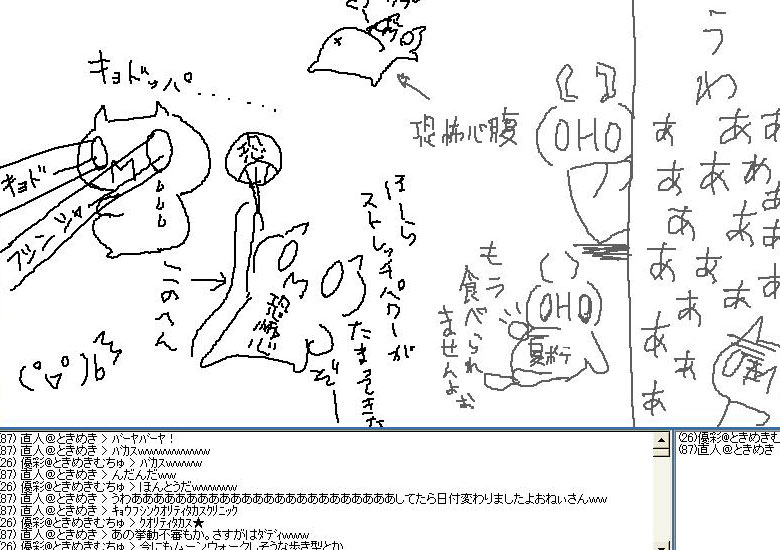 キョドッパ………
恐怖心腹
うわ
あああああああああああああああああああ
キョド
プシンシャ
恐
恐怖心
このへん
ほーら
ストレッチパワーが
たまってきた
ぞー
もう
食べられ
ませんよぉ
夏ポテ
OHO
OHO
(87) 直人@ときめき > バーヤバーヤ！
(87) 直人@ときめき > バカスwwwwwwwwwwww
(26) 優彩@ときめきむちゅ > バカスwwwwww
(87) 直人@ときめき > んだんだww
(26) 優彩@ときめきむちゅ > ほんとうだwwwwwwww
(87) 直人@ときめき > うわあああああああああああああああああああああああああしてたら日付変わりましたよおねいさんww
(87) 直人@ときめき > キョウフシンクオリティタカスクリニック
(26) 優彩@ときめきむちゅ > クオリティタカス★
(87) 直人@ときめき > あの挙動不審もか。さすがはダディwwww
(26) 優彩@ときめきむちゅ > 今にもムーンウォークしそうな歩き型とか
(26)優彩@ときめきむ
(87)直人@ときめき